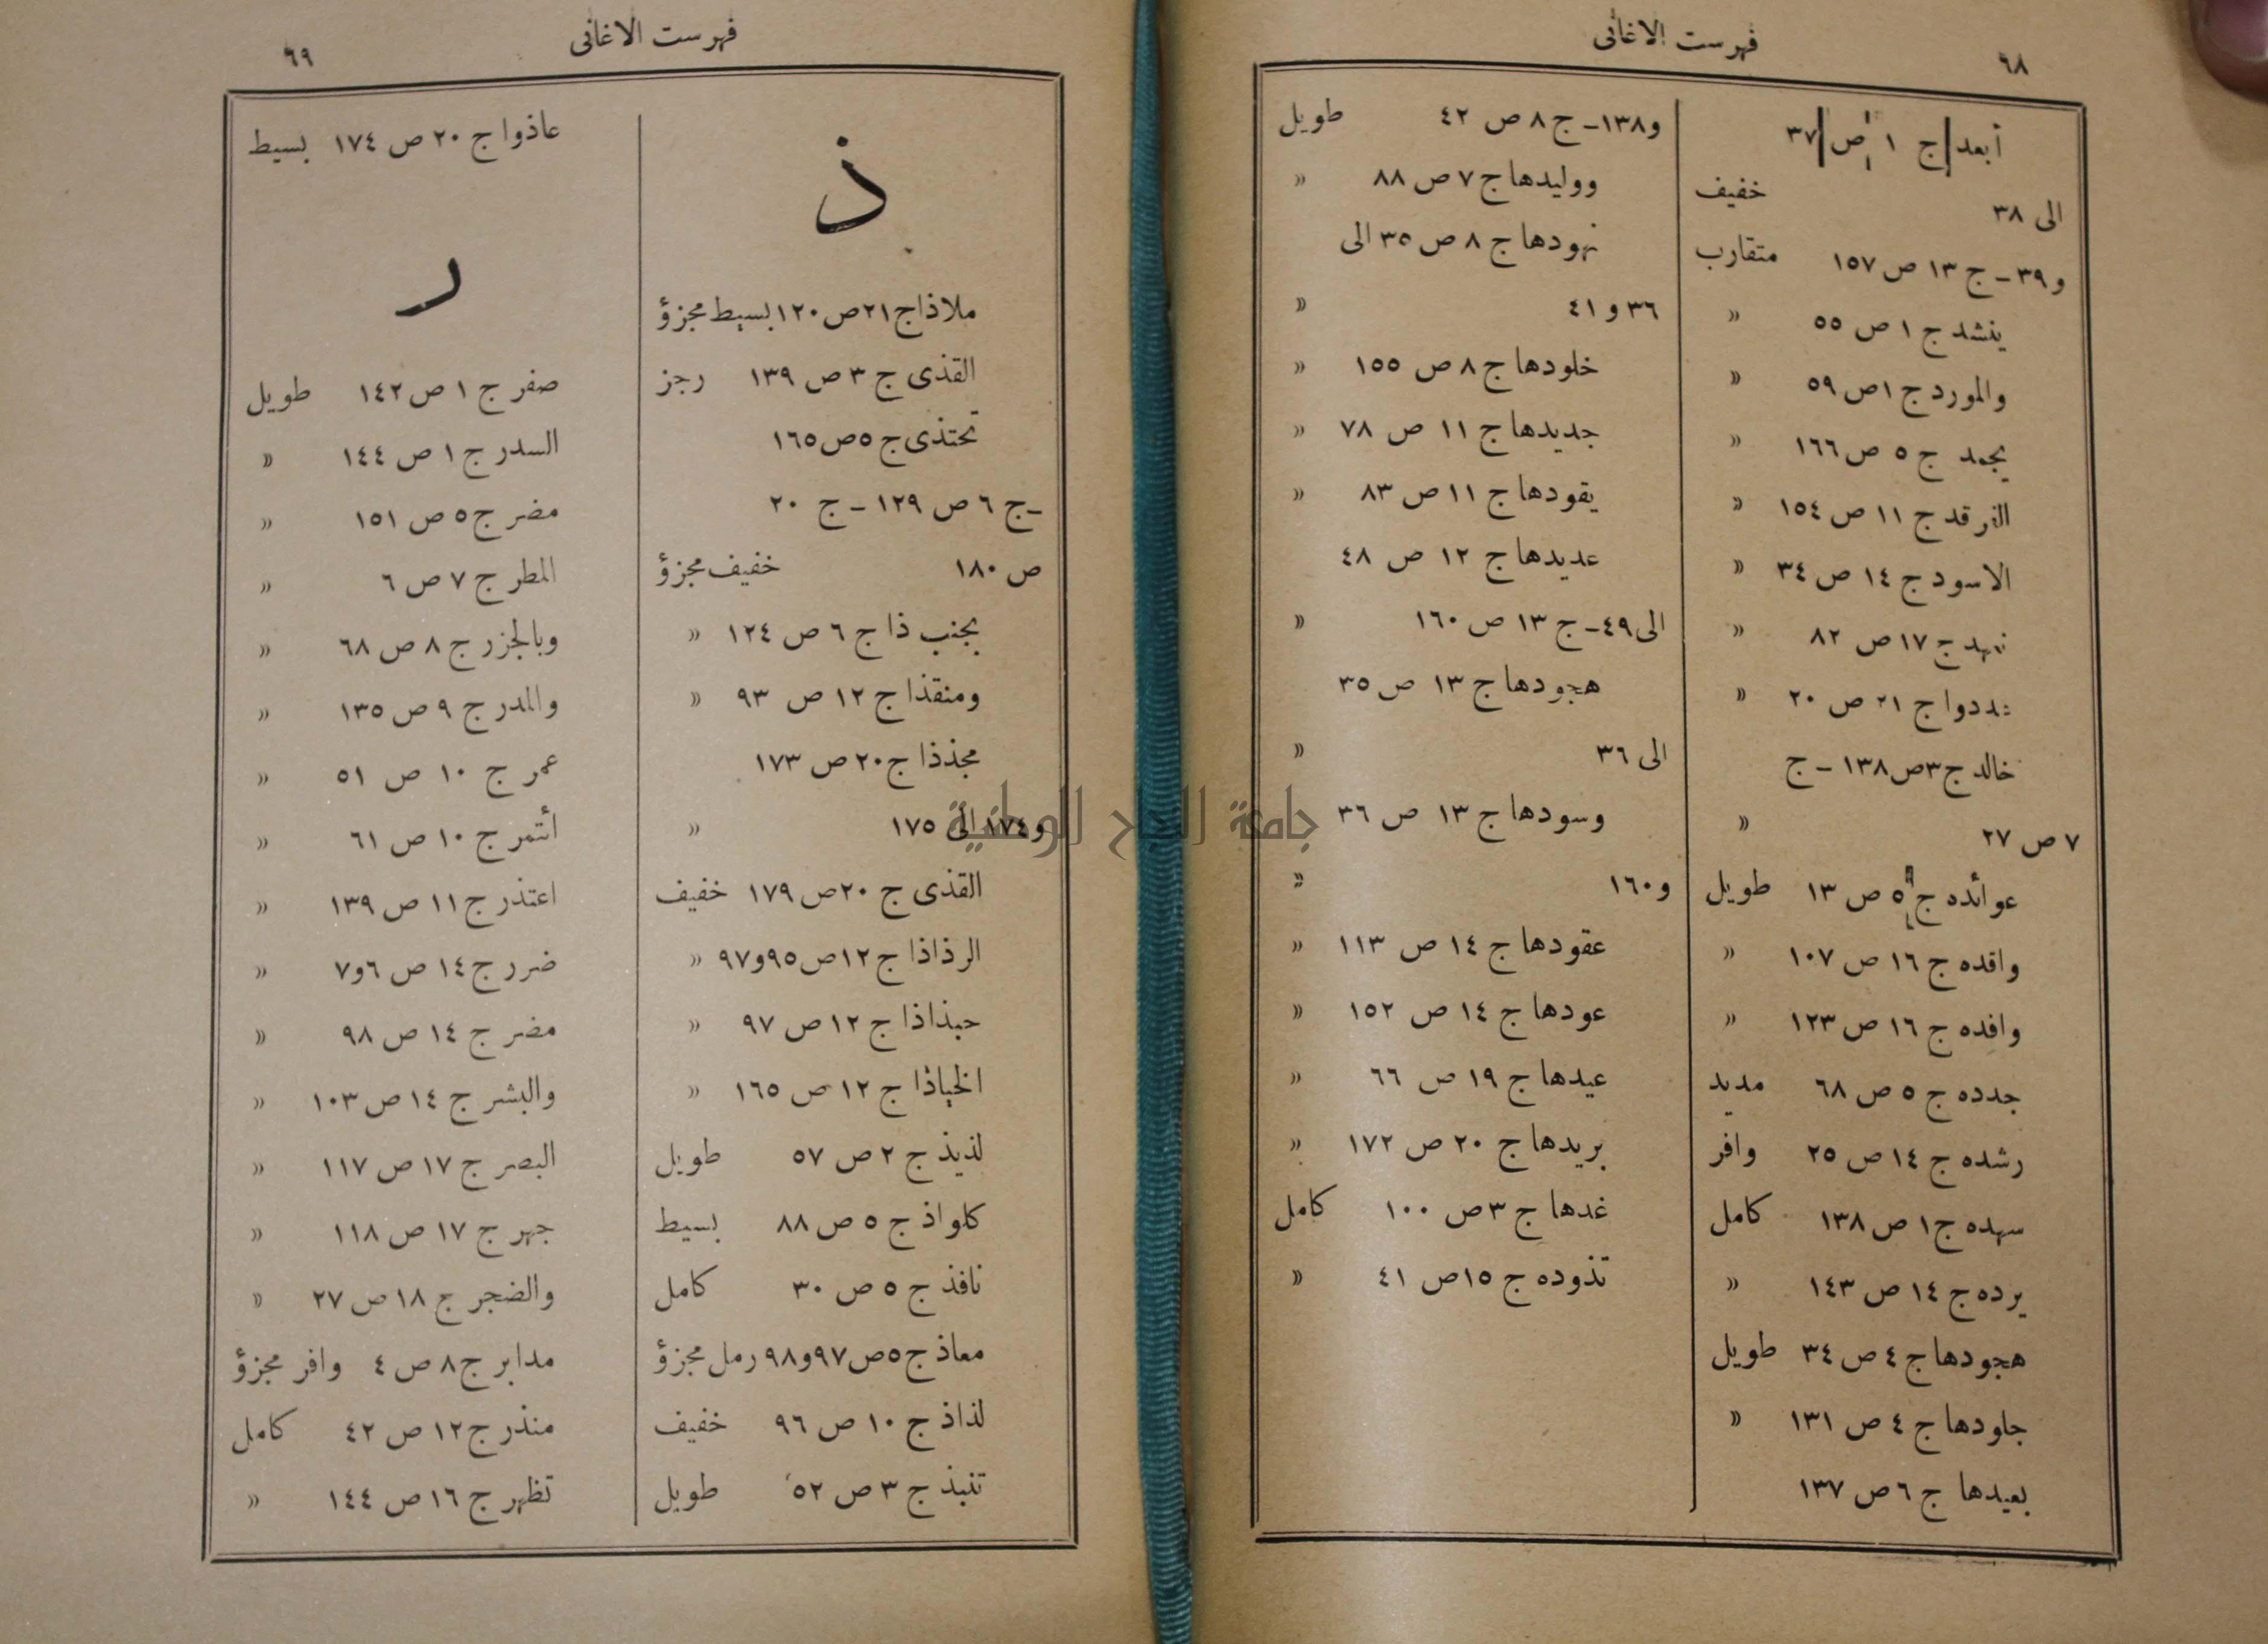 ٦٨
فهرست الاغانى
أبعد ج ١ ص ٣٧
الى ٣٨ خفيف
و٣٩ – ج ١٣ ص ١٥٧ متقارب
ينشد ج ١ ص ٥٥ »
والمورد ج ١ ص ٥٩ »
يجمد ج ٥ ص ١٦٦ »
ج ١١ ص ١٥٤ »
الاسود ج ١٤ ص ٣٤ »
نهد ج ١٧ ص ٨٢ »
ج ٢١ ص ٢٠ »
خالد ج ٣ ص ١٣٨ – ج
٧ ص ٢٧ »
عوائده ج ٥ ص ١٣ طويل
واقده ج ١٦ ص ١٠٧ »
وافده ج ١٦ ص ١٢٣ »
جدده ج ٥ ص ٦٨ مديد
رشده ج ١٤ ص ٢٥ وافر
سهده ج ١ ص ١٣٨ كامل
يرده ج ١٤ ص ١٤٣ »
هجودها ج ٤ ص ٣٤ طويل
جلودها ج ٤ ص ١٣١ »
بعيدها ج ٦ ص ١٣٧
و١٣٨ – ج ٨ ص ٤٢ طويل
ووليدها ج ٧ ص ٨٨ »
نهودها ج ٨ ص ٣٥ الى
٣٦ و ٤١ »
خلودها ج ٨ ص ١٥٥ »
جديدها ج ١١ ص ٧٨ »
يقودها ج ١١ ص ٨٣ »
عديدها ج ١٢ ص ٤٨
الى ٤٩ – ج ١٣ ص ١٦٠ »
هجودها ج ١٣ ص ٣٥
الى ٣٦ »
وسودها ج ١٣ ص ٣٦
و١٦٠ »
عقودها ج ١٤ ص ١١٣ »
عودها ج ١٤ ص ١٥٢ »
عيدها ج ١٩ ص ٦٦ »
بريدها ج ٢٠ ص ١٧٢ »
غدها ج ٣ ص ١٠٠ كامل
تذوده ج ١٥ ص ٤١ »
فهرست الاغانى
٦٩
ذ
ملاذا ج ٢١ ص ١٢٠ بسيط مجزؤ
القذى ج ٣ ص ١٣٩ رجز
تحتذى ج ٥ ص ١٦٥
– ج ٦ ص ١٢٩ – ج ٢٠
ص ١٨٠ خفيف مجزؤ
بجنب ذا ج ٦ ص ١٢٤ »
ومنقذا ج ١٢ ص ٩٣ »
مجذذا ج ٢٠ ص ١٧٣
و١٧٤ الى ١٧٥ »
القذى ج ٢٠ ص ١٧٩ خفيف
الرذاذا ج ١٢ ص ٩٥ و٩٧ »
حبذاذا ج ١٢ ص ٩٧ »
ج ١٢ ص ١٦٥ »
لذيذ ج ٢ ص ٥٧ طويل
كلواذ ج ٥ ص ٨٨ بسيط
نافذ ج ٥ ص ٣٠ كامل
معاذ ج ٥ ص ٩٧ و٩٨ رمل مجزؤ
لذاذ ج ١٠ ص ٩٦ خفيف
تنبذ ج ٣ ص ٥٢ طويل
عاذوا ج ٢٠ ص ١٧٤ بسيط
ر
صفر ج ١ ص ١٤٢ طويل
السدر ج ١ ص ١٤٤ »
مضر ج ٥ ص ١٥١ »
المطر ج ٧ ص ٦ »
وبالجزر ج ٨ ص ٦٨ »
والمدر ج ٩ ص ١٣٥ »
عمر ج ١٠ ص ٥١ »
أتتمر ج ١٠ ص ٦١ »
اعتذر ج ١١ ص ١٣٩ »
ضرر ج ١٤ ص ٦ و٧ »
مضر ج ١٤ ص ٩٨ »
والبشر ج ١٤ ص ١٠٣ »
البصر ج ١٧ ص ١١٧ »
جهر ج ١٧ ص ١١٨ »
والضجر ج ١٨ ص ٢٧ »
مدابر ج ٨ ص ٤ وافر مجزؤ
منذر ج ١٢ ص ٤٢ كامل
تظهر ج ١٦ ص ١٤٤ »
جامعة النجاح الوطنية